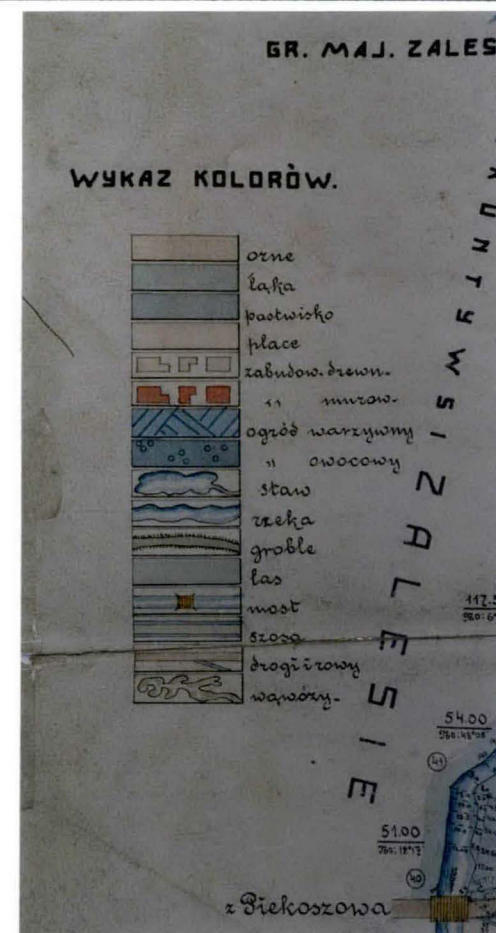 GR. MAJ. ZALES
WYKAZ KOLORÒW.
orne
łąka
pastwisko
place
zabudow. drewn.
" murow.
ogród warzywny
" owocowy
staw
rzeka
groble
las
most
szosa
drogi i rowy
wąwózy.
GRUNTY WSI ZALESIE
117.5
54.00
51.00
41
40
z Piekoszowa